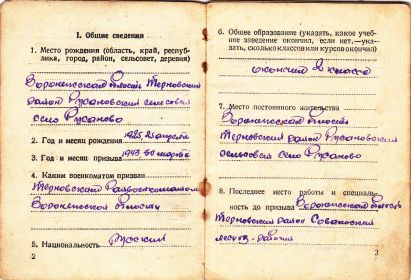 I. Общие сведения
1. Место рождения (область, край, респуб-
лика, город, район, сельсовет, деревня)
Воронежская область Терновский
район Русановский сельсовет
село Русаново
2. Год и месяц рождения 1925, 25 апреля
3. Год и месяц призыва 1943 30 марта
4. Каким военкоматом призван
Терновским Райвоенкоматом
Воронежской области
5. Национальность русский
2
6. Общее образование (указать, какое учеб-
ное заведение окончил, если нет,—ука-
зать, сколько классов или курсов окончил)
окончил 2 класса
7. Место постоянного жительства
Воронежская область
Терновский район Русановский
сельсовет село Русаново
8. Последнее место работы и специаль-
ность до призыва Воронежская область
Терновский район
рабочий
3